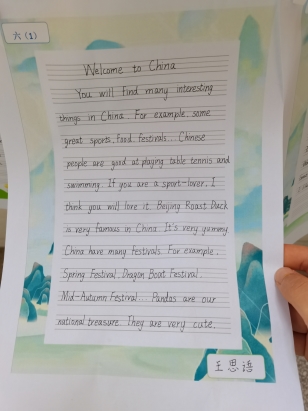 六(1)
Welcome to China
You will find many interesting
things in China. For example, some
great sports, food, festivals... Chinese
people are good at playing table tennis and
swimming. If you are a sport-lover, I
think you will love it. Beijing Roast Duck
is very famous in China. It's very yummy.
China have many festivals. For example,
Spring Festival, Dragon Boat Festival,
Mid-Autumn Festival... Pandas are our
national treasure. They are very cute.
王思语